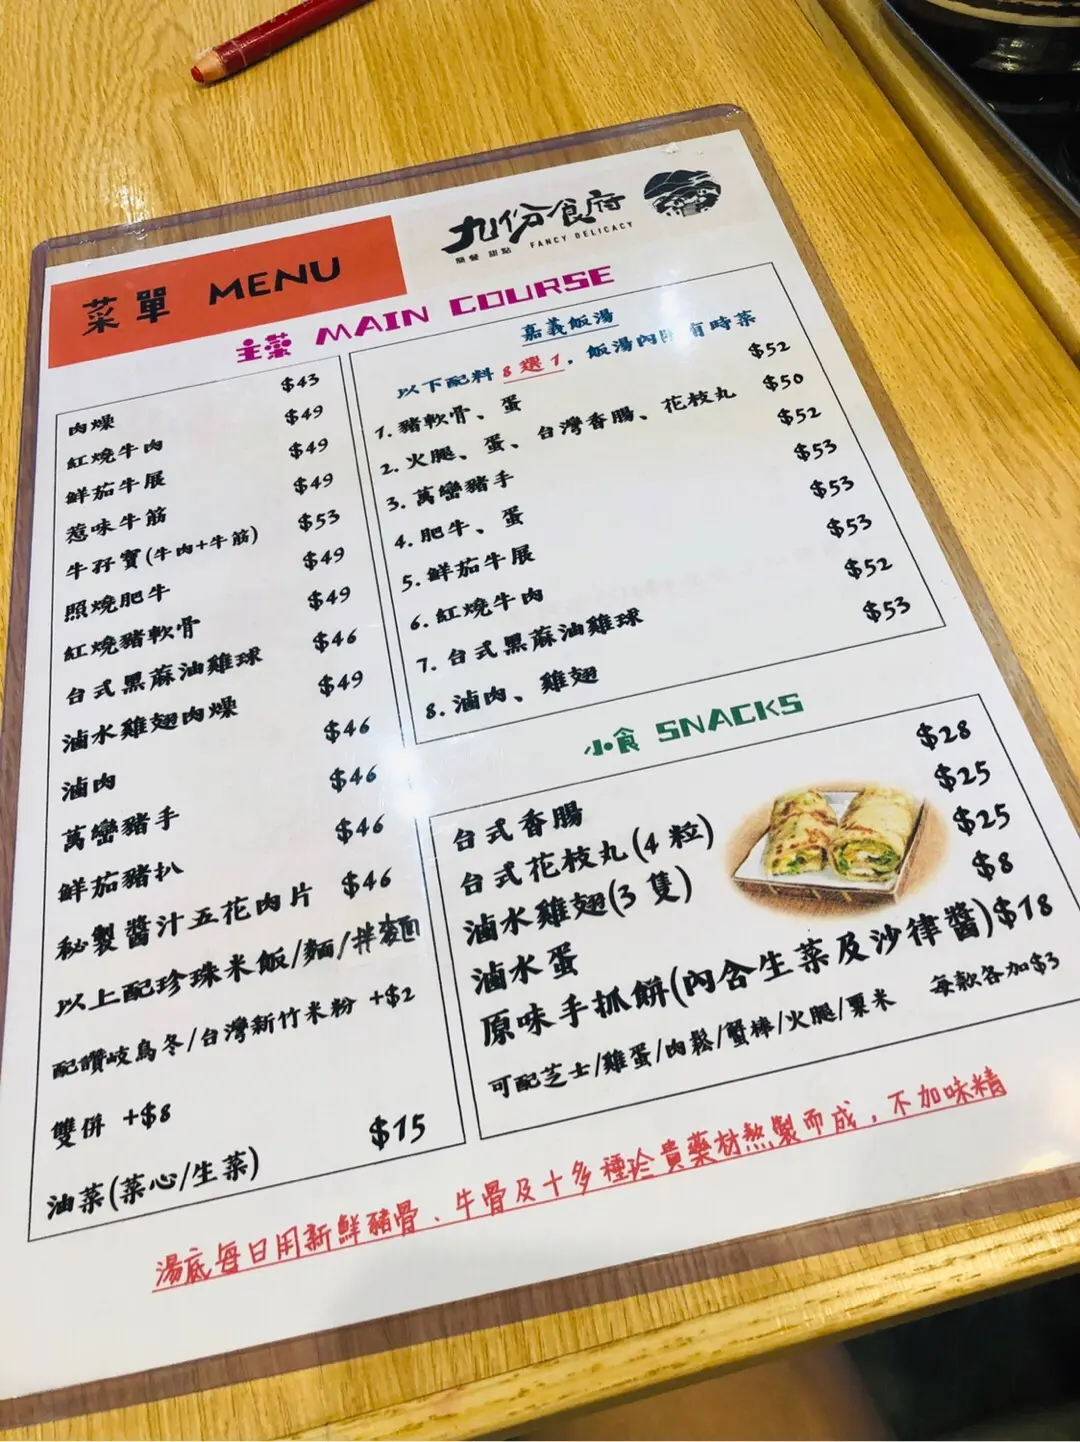 九份食府
簡餐 甜點 FANCY DELICACY
菜單 MENU
主菜 MAIN COURSE
肉燥 $43
紅燒牛肉 $49
鮮茄牛展 $49
惹味牛筋 $49
牛孖寶(牛肉+牛筋) $53
照燒肥牛 $49
紅燒豬軟骨 $49
台式黑蔴油雞球 $46
滷水雞翅肉燥 $49
滷肉 $46
萬巒豬手 $46
鮮茄豬扒 $46
秘製醬汁五花肉片 $46
以上配珍珠米飯/麵/拌麵
配讚岐烏冬/台灣新竹米粉 +$2
雙併 +$8
油菜(菜心/生菜) $15
嘉義飯湯
以下配料 8 選 1, 飯湯內 有時菜
1. 豬軟骨、蛋 $52
2. 火腿、蛋、台灣香腸、花枝丸 $50
3. 萬巒豬手 $52
4. 肥牛、蛋 $53
5. 鮮茄牛展 $53
6. 紅燒牛肉 $53
7. 台式黑蔴油雞球 $52
8. 滷肉、雞翅 $53
小食 SNACKS
台式香腸 $28
台式花枝丸(4 粒) $25
滷水雞翅(3 隻) $25
滷水蛋 $8
原味手抓餅(內含生菜及沙律醬) $18
可配芝士/雞蛋/肉鬆/蟹棒/火腿/粟米 每款各加$3
湯底每日用新鮮豬骨、牛骨及十多種珍貴藥材熬製而成，不加味精